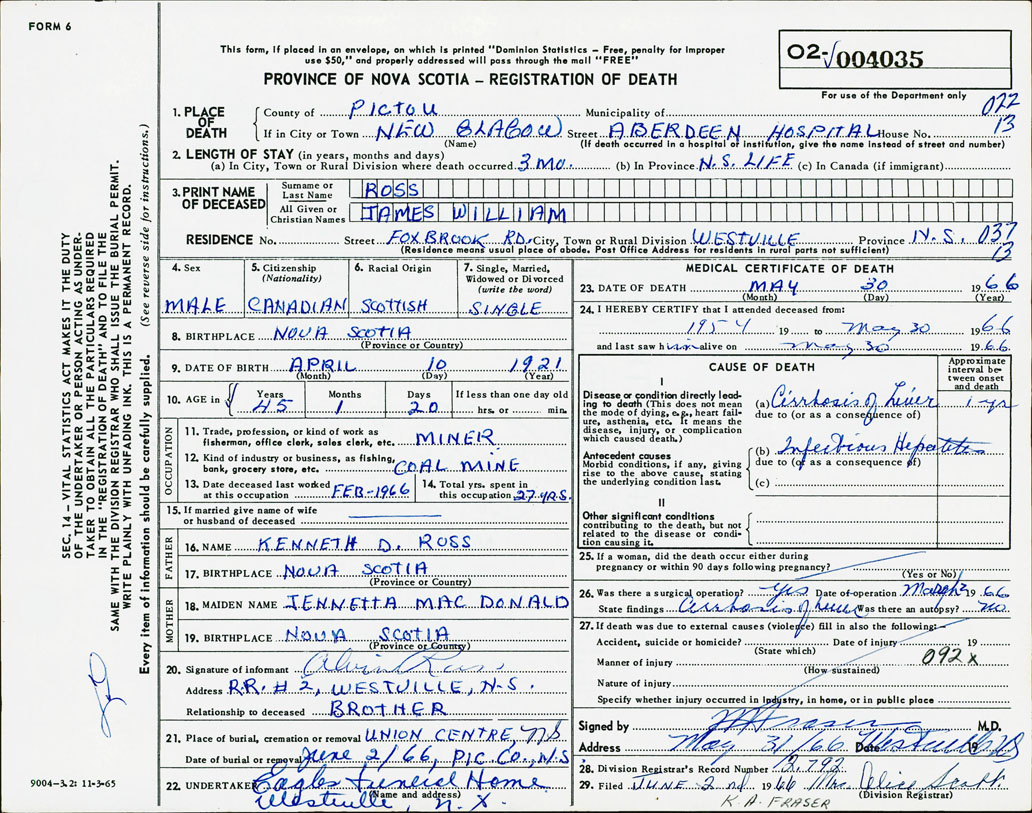 FORM 6
This form, if placed in an envelope, on which is printed "Dominion Statistics – Free, penalty for improper
use $50," and properly addressed will pass through the mail "FREE"
PROVINCE OF NOVA SCOTIA – REGISTRATION OF DEATH
02-√004035
For use of the Department only
022
13
1. PLACE OF DEATH
County of PICTOU Municipality of
If in City or Town NEW GLASGOW Street ABERDEEN HOSPITAL House No.
(Name) (If death occurred in a hospital or institution, give the name instead of street and number)
2. LENGTH OF STAY (in years, months and days)
(a) In City, Town or Rural Division where death occurred. 3 MO. (b) In Province N.S. LIFE (c) In Canada (if immigrant)
3. PRINT NAME OF DECEASED
Surname or Last Name ROSS
All Given or Christian Names JAMES WILLIAM
RESIDENCE No. Street FOXBROOK RD. City, Town or Rural Division WESTVILLE Province N.S. 037
13
(Residence means usual place of abode. Post Office Address for residents in rural parts not sufficient)
4. Sex
MALE
5. Citizenship
(Nationality)
CANADIAN
6. Racial Origin
SCOTTISH
7. Single, Married,
Widowed or Divorced
(write the word)
SINGLE
8. BIRTHPLACE NOVA SCOTIA
(Province or Country)
9. DATE OF BIRTH APRIL 10 1921
(Month) (Day) (Year)
10. AGE in
Years Months Days If less than one day old
45 1 20 hrs. or min.
OCCUPATION
11. Trade, profession, or kind of work as
fisherman, office clerk, sales clerk, etc. MINER
12. Kind of industry or business, as fishing,
bank, grocery store, etc. COAL MINE
13. Date deceased last worked
at this occupation FEB-1966
14. Total yrs. spent in
this occupation 27 YRS.
15. If married give name of wife
or husband of deceased
FATHER
16. NAME KENNETH D. ROSS
17. BIRTHPLACE NOVA SCOTIA
(Province or Country)
MOTHER
18. MAIDEN NAME JENNETTA MAC DONALD
19. BIRTHPLACE NOVA SCOTIA
(Province or Country)
20. Signature of informant Alvin Ross
Address R.R. # 2, WESTVILLE, N.S.
Relationship to deceased BROTHER
21. Place of burial, cremation or removal UNION CENTRE, NS
Date of burial or removal June 2/66, PIC. CO., N.S
22. UNDERTAKER Eagles Funeral Home
(Name and address)
Westville, N.S.
MEDICAL CERTIFICATE OF DEATH
23. DATE OF DEATH MAY 30 1966
(Month) (Day) (Year)
24. I HEREBY CERTIFY that I attended deceased from:
1954 19 to May 30 1966
and last saw him alive on May 30 1966
CAUSE OF DEATH
Approximate
interval be-
tween onset
and death
I
Disease or condition directly lead-
ing to death (This does not mean
the mode of dying, e.g., heart fail-
ure, asthenia, etc. It means the
disease, injury, or complication
which caused death.)
(a) Cirrhosis of Liver 1 yr
due to (or as a consequence of)
Antecedent causes
Morbid conditions, if any, giving
rise to the above cause, stating
the underlying condition last.
(b) Infectious Hepatitis
due to (or as a consequence of)
(c)
II
Other significant conditions
contributing to the death, but not
related to the disease or condi-
tion causing it.
25. If a woman, did the death occur either during
pregnancy or within 90 days following pregnancy?
(Yes or No)
26. Was there a surgical operation? Yes Date of operation March 2 1966
State findings Cirrhosis of Liver Was there an autopsy? No
27. If death was due to external causes (violence) fill in also the following:–
Accident, suicide or homicide? Date of injury 19
(State which)
Manner of injury 092 x
(How sustained)
Nature of injury
Specify whether injury occurred in industry, in home, or in public place
Signed by Fraser M.D.
Address May 31/66 Date Westville NS 19
28. Division Registrar's Record Number 12,792
29. Filed JUNE 2nd 1966 Mrs. Alice Scott
(Division Registrar)
K. A. FRASER
SEC. 14 – VITAL STATISTICS ACT MAKES IT THE DUTY
OF THE UNDERTAKER OR PERSON ACTING AS UNDER-
TAKER TO OBTAIN ALL THE PARTICULARS REQUIRED
IN THE "REGISTRATION OF DEATH" AND TO FILE THE
SAME WITH THE DIVISION REGISTRAR WHO SHALL ISSUE THE BURIAL PERMIT.
WRITE PLAINLY WITH UNFADING INK. THIS IS A PERMANENT RECORD.
Every item of information should be carefully supplied. (See reverse side for instructions.)
9004–3.2: 11-3-65